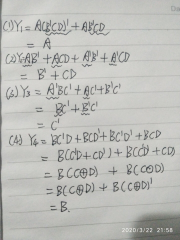 (1) Y₁ = A(BCD)' + ABCD
= A
(2) Y₂ = AB' + ACD + A'B' + A'CD
= B' + CD
(3) Y₃ = A'BC' + AC' + B'C'
= BC' + B'C'
= C'
(4) Y₄ = BC'D + BCD' + BC'D' + BCD
= B(C'D + CD') + B(C'D' + CD)
= B(C⊕D) + B(C⊙D)
= B(C⊕D) + B(C⊕D)'
= B.
2020/3/22 21:58